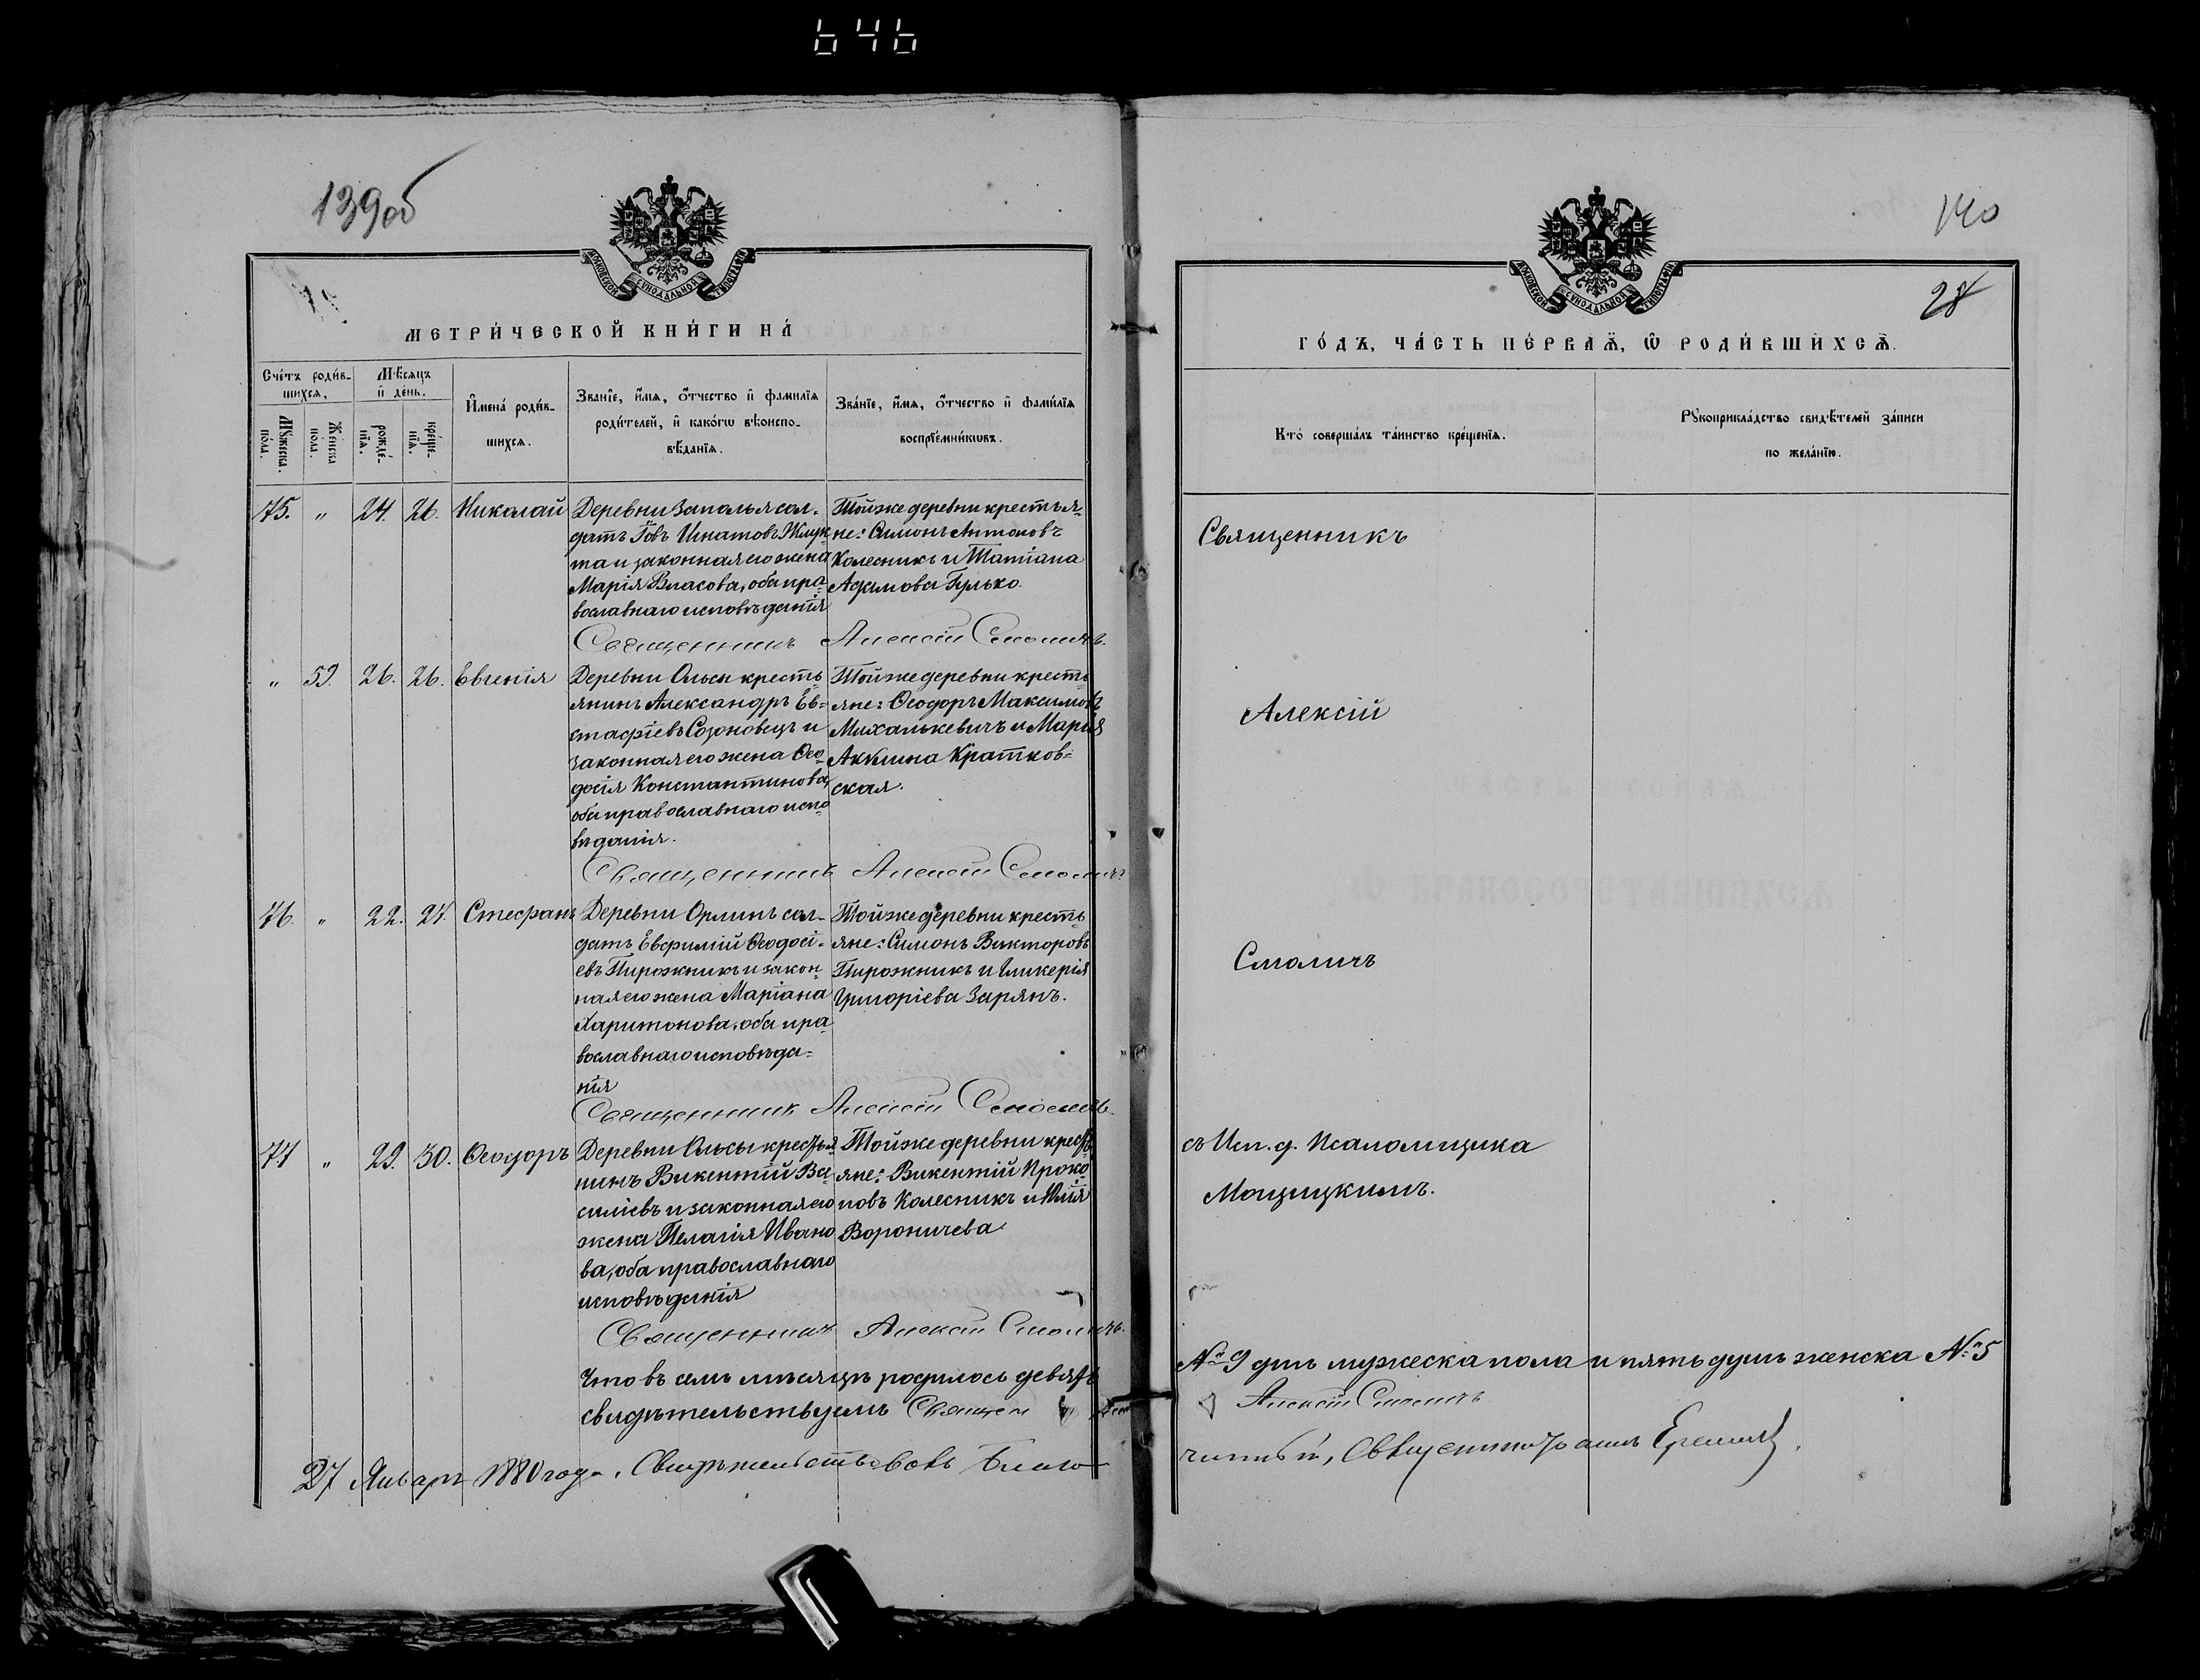 646
139об
МОСКОВСКОЙ СѴНОДАЛЬНОЙ ТИПОГРАФІИ
МЕТРИ́ЧЕСКОЙ КНИ́ГИ НА́
Счётъ роди́в-
шихся,
Мѣ́сяцъ
и҆ де́нь.
Мꙋ́жеска по́ла.
Же́нска по́ла.
рожде́-нїѧ.
креще́-нїѧ.
И҆мена́ роди́в-
шихся.
Зва́нїе, и҆́мѧ, ѻ҆́тчество и҆ фами́лїѧ
роди́телей, и҆ како́гѡ вѣ̀роиспо-
вѣ́данїѧ.
Зва́нїе, и҆́мѧ, ѻ҆́тчество и҆ фами́лїѧ
воспрїе́мникѡвъ.
75. " 24. 26. Николай
Деревни Заполья сол-
датъ Іовъ Игнатовъ Жлук-
та и законная его жена
Марія Власова, оба пра-
вославнаго исповѣданія
Тойже деревни крестья-
не: Симонъ Антоновъ
Колесникъ и Татіана
Адамова Гулько.
Священникъ Алексій Смоличъ.
" 59. 26. 26. Евгенія
Деревни Ольсы кресть-
янинъ Александръ Ев-
стафіевъ Созоновецъ и
законная его жена Ѳео-
досія Константинова,
оба православнаго испо-
вѣданія.
Тойже деревни кресть-
яне: Ѳеодоръ Максимовъ
Михалькевичъ и Марія
Акулина Кратков-
ская.
Священникъ Алексій Смоличъ
76. " 22. 27. Стефанъ
Деревни Орлинъ сол-
датъ Евфимій Ѳеодосі-
евъ Пирожникъ и закон-
ная его жена Маріана
Харитонова, оба пра-
вославнаго исповѣда-
нія
Тойже деревни кресть-
яне: Симонъ Викторовъ
Пирожникъ и Гликерія
Григоріева Зарянъ.
Священникъ Алексій Смоличъ.
77 " 29. 30. Ѳеодоръ
Деревни Ольсы крестья-
нинъ Викентій Ва-
силіевъ и законная его
жена Пелагія Ивано
ва, оба православнаго
исповѣданія
Тойже деревни кресть-
яне: Викентій Проко-
повъ Колесникъ и Юлія
Вороничева.
Священникъ Алексій Смоличъ.
Что въ семъ мѣсяцѣ родилось девять
свидѣтельствуемъ Священ
27 Январь 1880 года. Свидѣтельствовалъ Благо
140
28
МОСКОВСКОЙ СѴНОДАЛЬНОЙ ТИПОГРАФІИ
ГО́ДЪ, ЧА́СТЬ ПЕ́РВАѦ, Ѽ РОДИ́ВШИХСѦ.
Кто̀ соверша́лъ та́инство креще́нїѧ.
Рꙋкоприкла́дство свидѣ́телей за́писи
по жела́нїю.
Священникъ
Алексій
Смоличъ
съ Исп. д. Псаломщика
Мощицкимъ.
№ 9 душъ мужеска пола и пять душъ женска № 5
Алексій Смоличъ
чинный, Священникъ